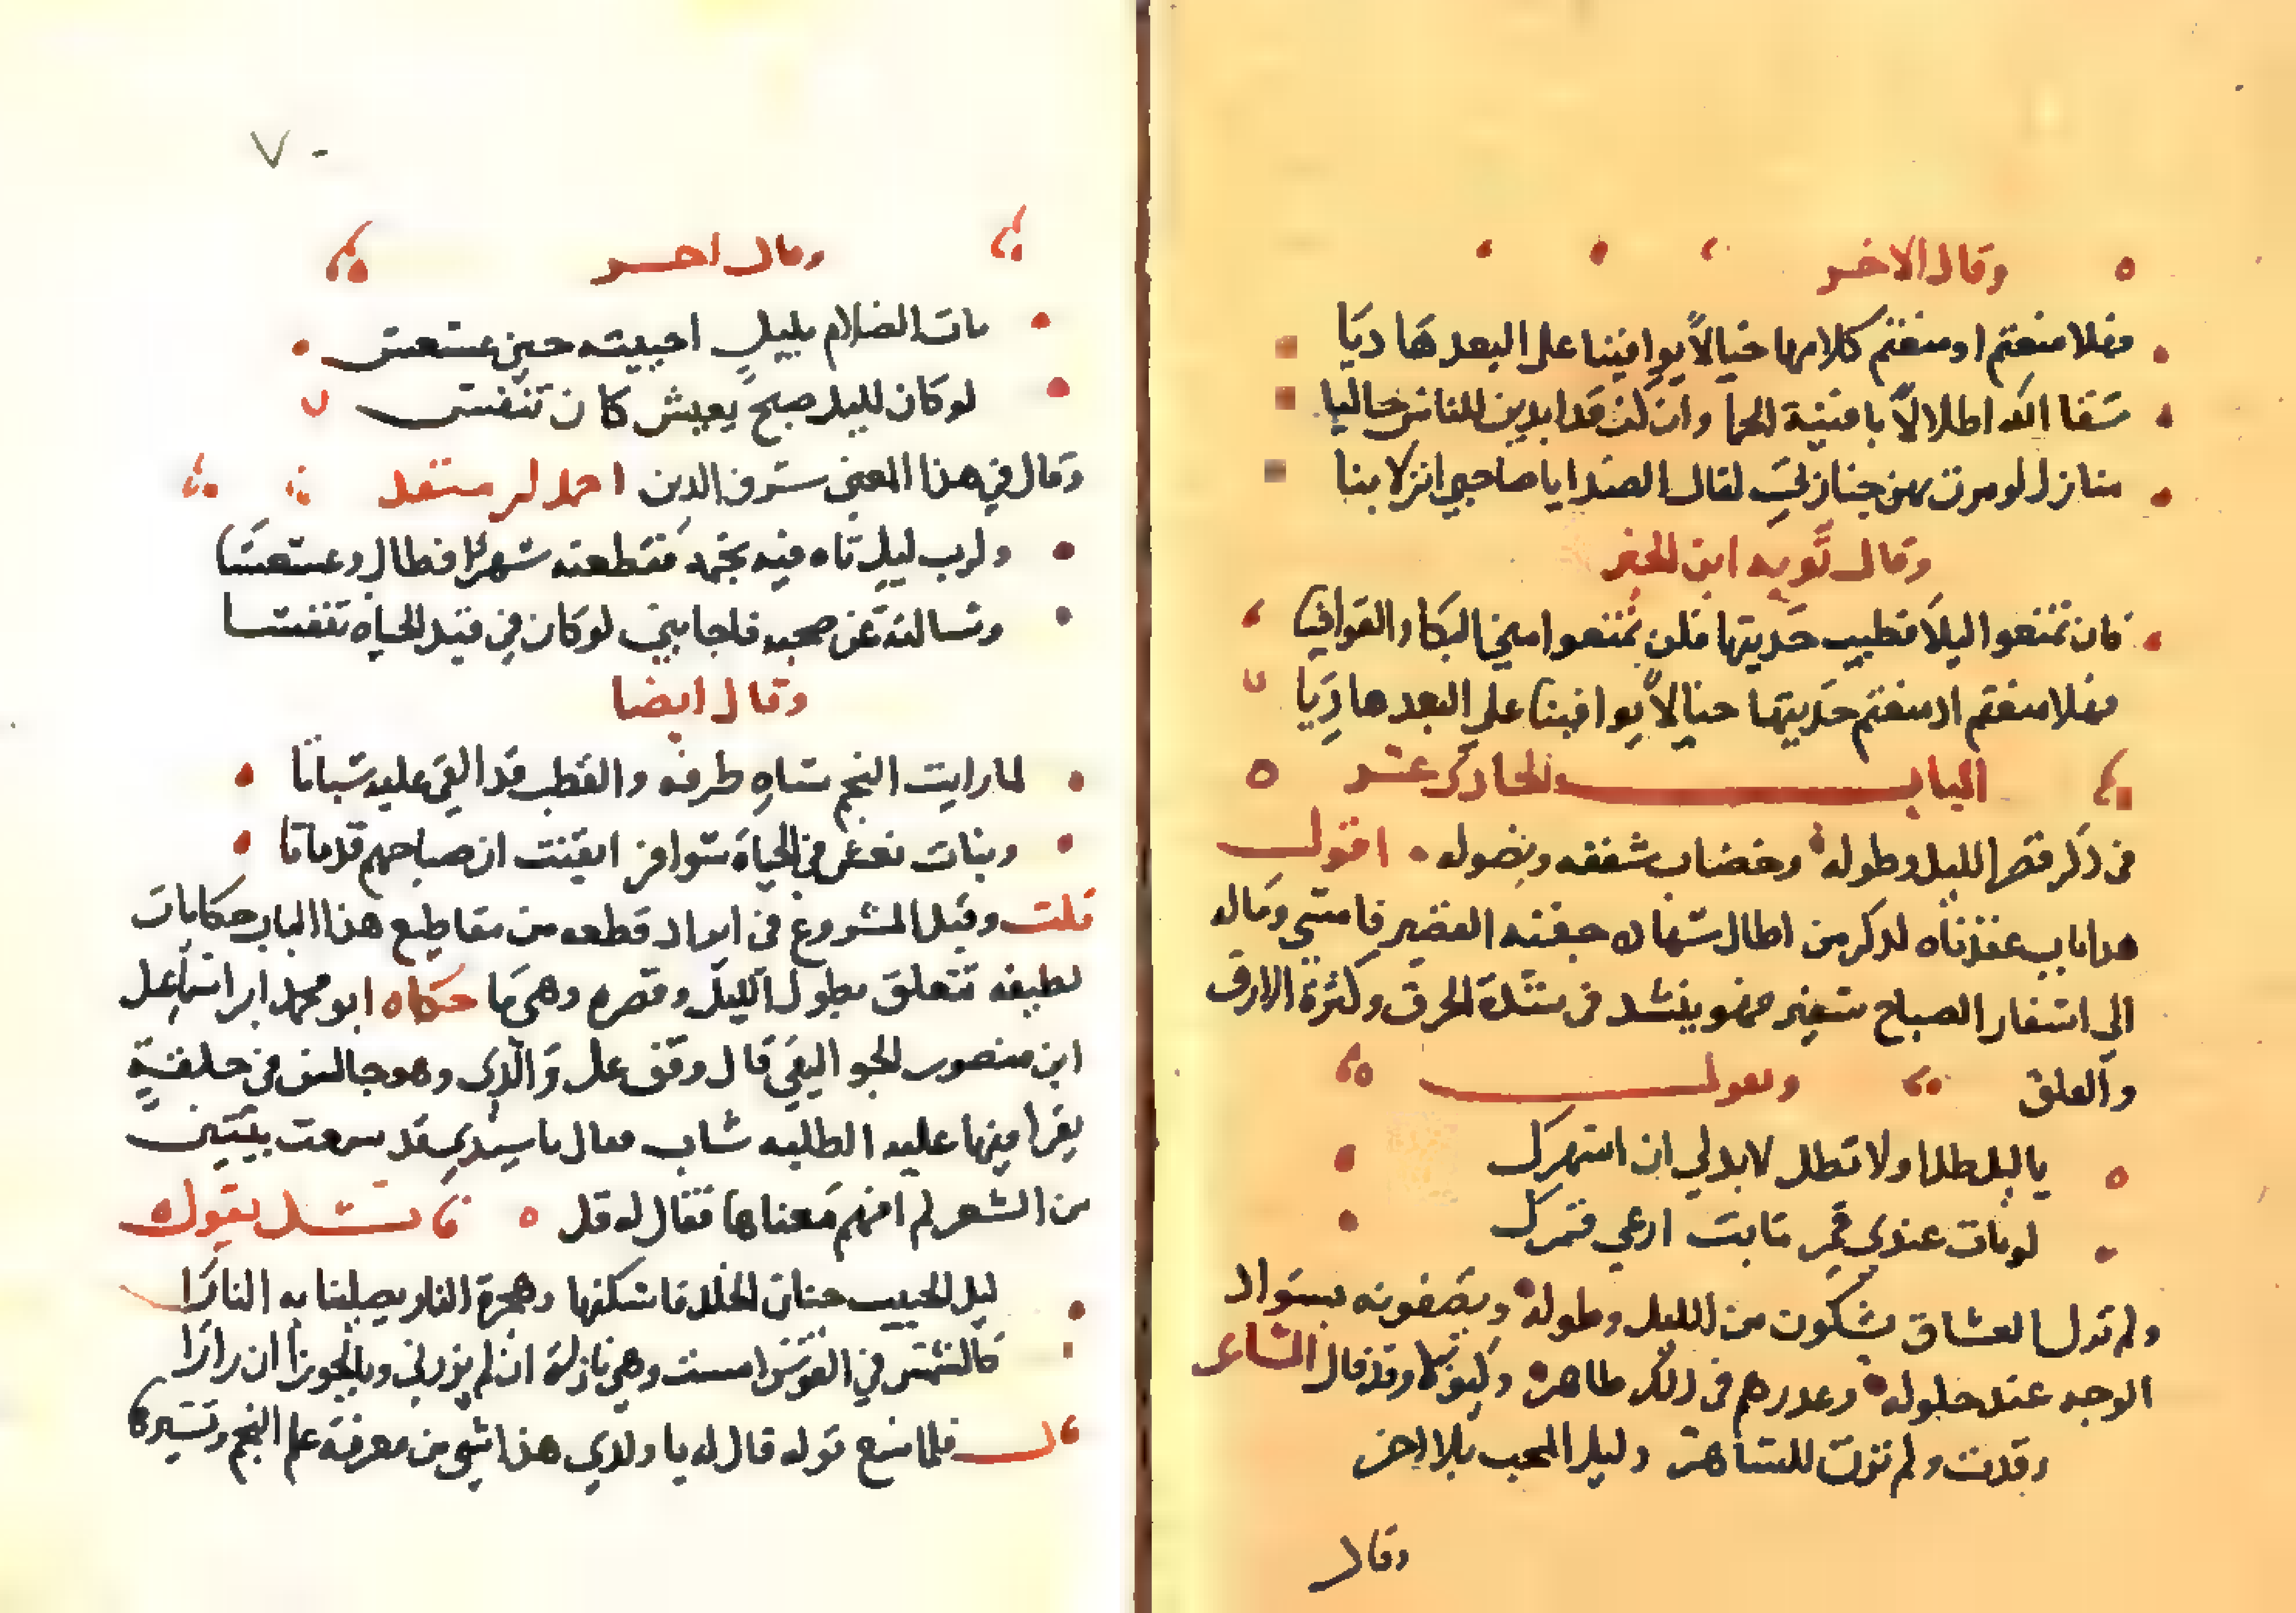 وقال الاخر
فهلا منعتم او منعتم كلامها خيالاً يوافينا على البعد هاديا
سقا الله اطلالاً بافنية الحما وان كن قد ابدين للناس خاليا
منازل لو مرت بهن جنازتي لقال الصدا يا صاحبي انزلا بنا
وقال توبه ابن الحمير
فان تمنعوا ليلا فطيب حديتها فلن تمنعوا مني البكا والقوافيا
فهلا منعتم اد منعتم حديتها خيالاً يوافينا على البعد هاديا
الباب الحادي عشر
في ذكر قصر الليل وطوله وخضاب شفقه ونصوله اقول
هدا باب عقدناه لدكر من اطال سهاده جفنه القصير فامسى وماله
الى اسفار الصباح سفير فهو ينشد في شدة الحرق وكثرة الارق
والعلق ويقول
يا ليل طل او لا تطل لابد لي ان اسهرك
لو بات عندي قمري ما بت ارعي قمرك
ولم تزل العشاق يشكون من الليل وطوله ويصفونه بسواد
الوجه عند حلوله وعدرهم في دلك طاهر وقد قال الشاعر
رقدت ولم ترت للساهر وليل المحب بلا اخر
وقال
٧٠
وقال اخر
مات الضلام بليل احييته حين عسعس
لو كان لليل صبح يعيش كان تنفس
وقال في هذا المعنى شرف الدين احمد بن منقد
ولرب ليل تاه فيه نجمه فقطعته سهرًا فطال وعسعسا
وسالته عن صحبه فاجابني لو كان في قيد الحياه تنفسا
وقال ايضا
لما رايت النجم ساهٍ طرفه والقطب قد القى عليه سباتا
وبنات نعش في الحياة سوافر ايقنت ان صباحهم قد ماتا
قلت وقبل الشروع في ايراد قطعه من مقاطيع هذا الباب حكايات
لطيفه تتعلق بطول الليل وقصره وهي ما حكاه ابو محمد ابن اسماعيل
ابن منصور الجواليقي قال وقف على والدي وهو جالس في حلقة
يقرا فيها عليه الطلبه شاب فقال يا سيدي قد سمعت بيتين
من الشعر لم افهم معناها فقال له قل فانشد يقول
ليل الحبيب جنان الخلد فاسكنها وهجرة النار يصلينا به النارا
كالشمس في القوس امست وهي نازلة ان لم يزرني وبالجوزا ان زارا
فلما سمع قوله قال له يا ولدي هذا شي من معرفة علم النجم وتسيره